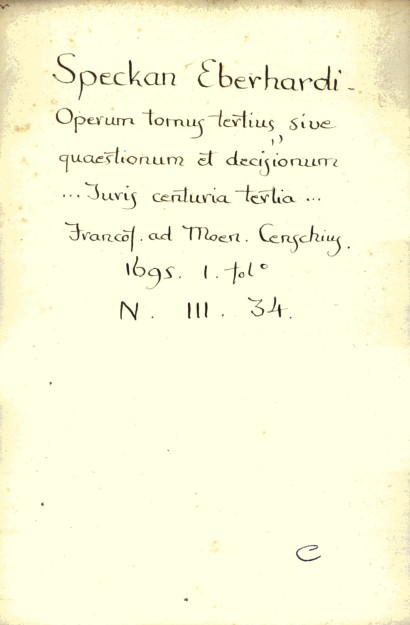 Speckan Eberhardi.
Operum tomus tertius, sive
quaestionum et decisionum
... Juris centuria tertia ...
Francof. ad Moen. Genschius.
1695. 1. fol°
N. III. 34.
C